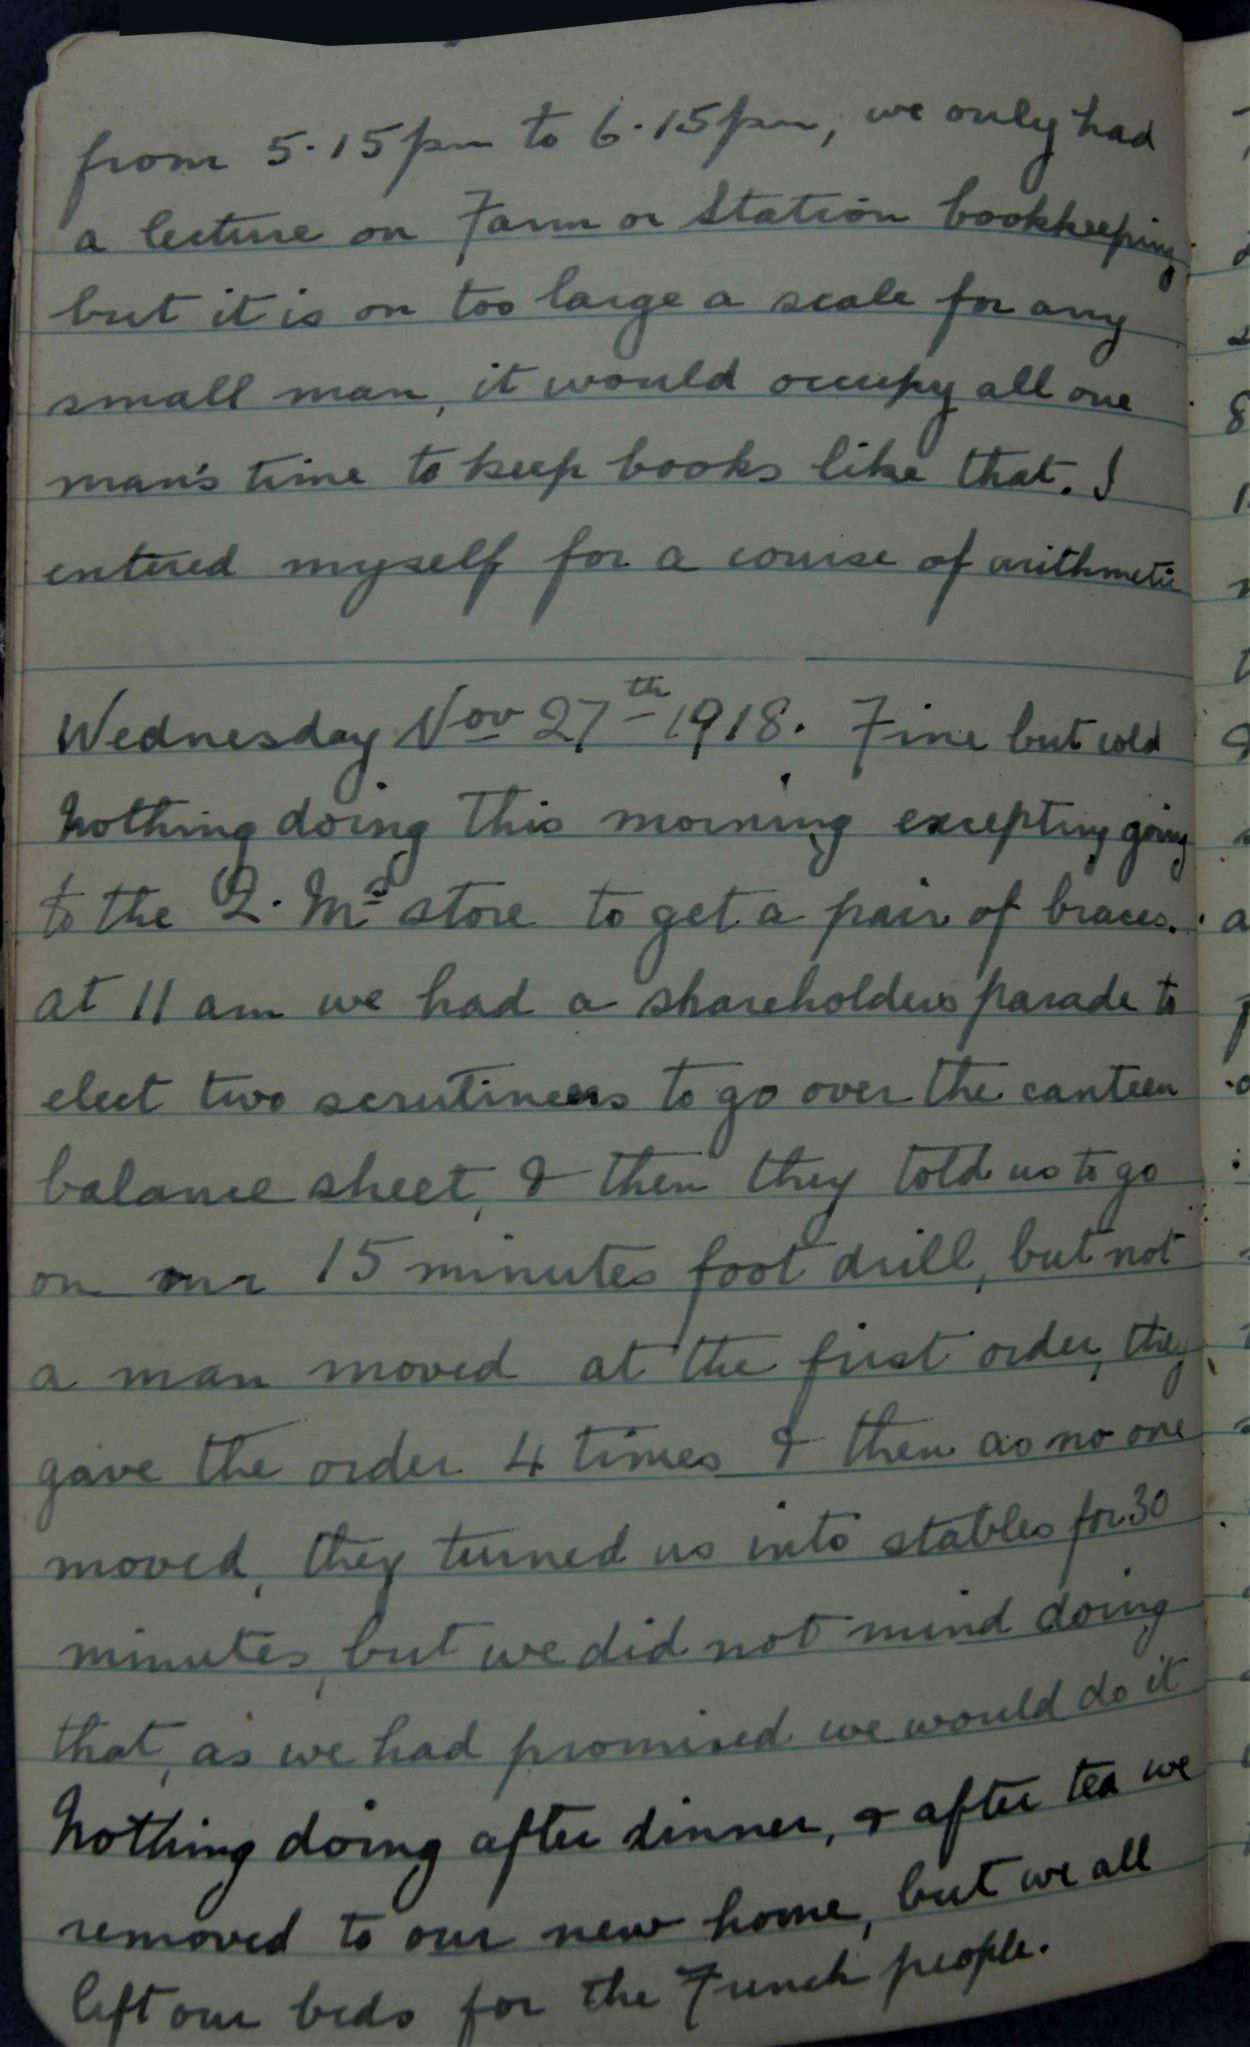 from 5.15pm to 6.15pm, we only had
a lecture on Farm or Station bookkeeping,
but it is on too large a scale for any
small man, it would occupy all one
man's time to keep books like that. I
entered myself for a course of arithmetic
Wednesday Nov 27th 1918. Fine but cold
Nothing doing this morning excepting going
to the Q. Ms store to get a pair of braces.
at 11 am we had a shareholders parade to
elect two scrutineers to go over the canteen
balance sheet, & then they told us to go
on our 15 minutes foot drill, but not
a man moved at the first order, they
gave the order 4 times & then as no one
moved, they turned us into stables for 30
minutes, but we did not mind doing
that, as we had promised we would do it
Nothing doing after dinner, & after tea we
removed to our new home, but we all
left our beds for the French people.